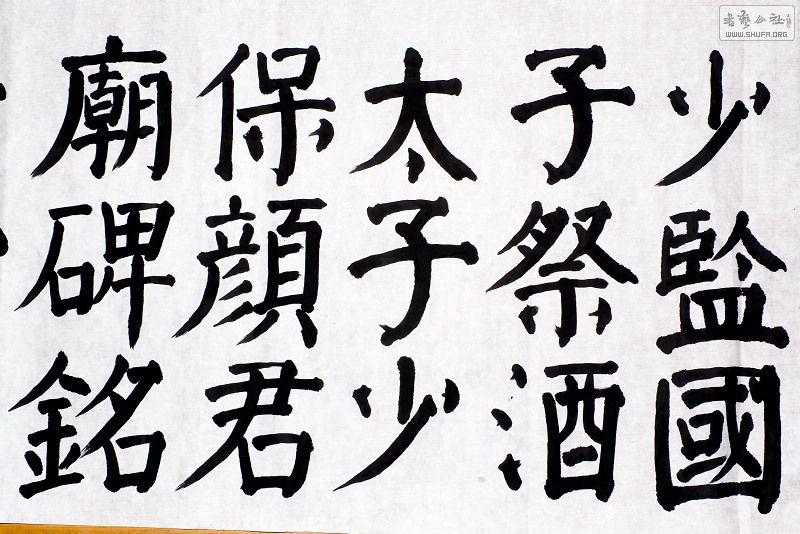 少監國
子祭酒
太子少
保顔君
廟碑銘
书艺公社
WWW.SHUFA.ORG